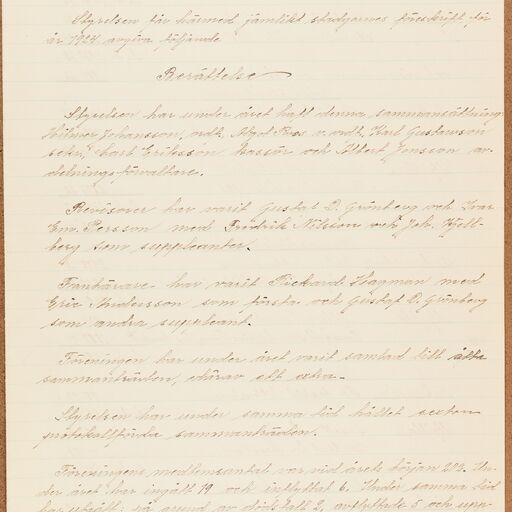 Styrelsen får härmed jämlikt stadgarnes föreskrift för
år 1924 avgiva följande
Berättelse
Styrelsen har under året haft denna sammansättning:
Hilmer Johansson, ordf. Axel Roos v. ordf. Karl Gustavsson
sekr. Karl Eriksson kassör och Albert Jonsson av-
delningsförvaltare.
Revisorer har varit Gustaf D. Grönberg och Ivar
Em. Persson med Fredrik Nilsson och Joh. Kjell-
berg som suppleanter.
Fanbärare har varit Rickard Hagman med
Eric Andersson som första och Gustaf D. Grönberg
som andra suppleant.
Föreningen har under året varit samlad till åtta
sammanträden, därav ett extra.
Styrelsen har under samma tid hållit sexton
protokollförda sammanträden.
Föreningens medlemsantal var vid årets början 209. Un-
der året har ingått 19 och inflyttat 6. Under samma tid
har utgått på grund av dödsfall 2, avflyttade 5 och upp-